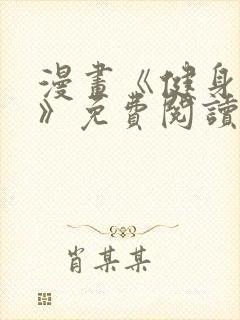 漫畫《健身
》免費閱讀
肖某某